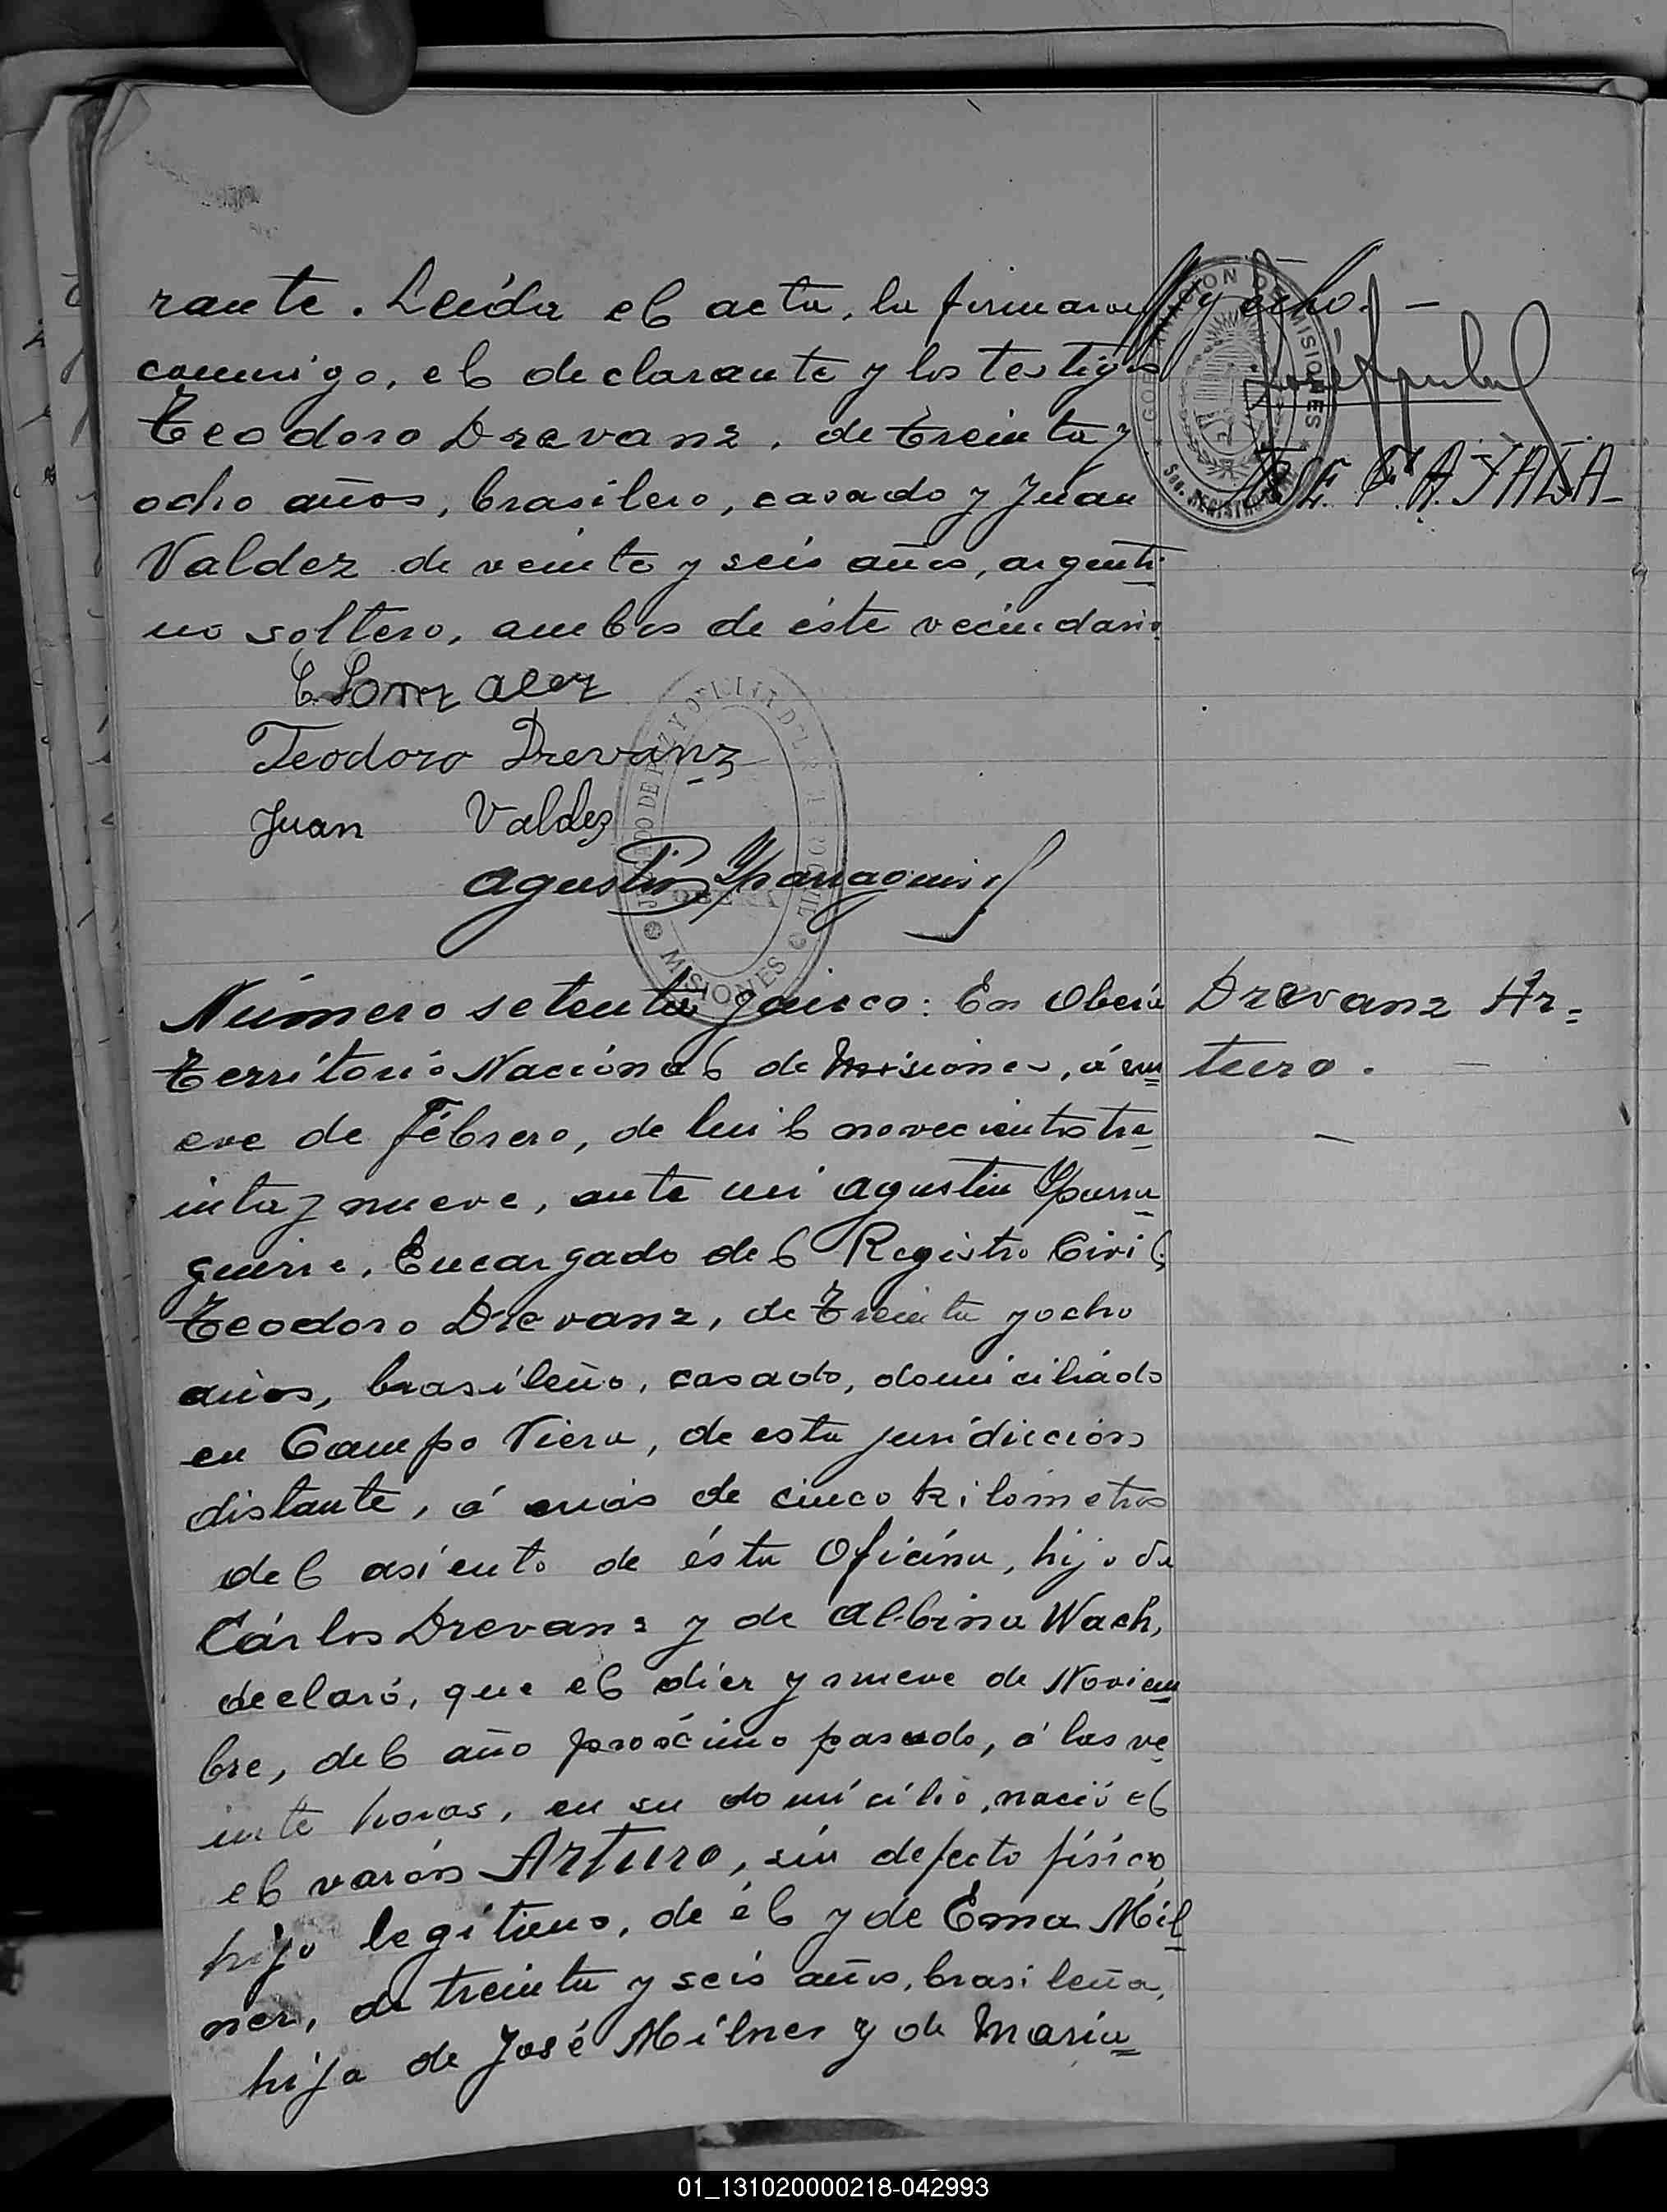 rante. Leída el acta, la firmaron
y ocho. —
conmigo, el declarante y los testigos
Teodoro Drevanz, de treinta y
ocho años, brasilero, casado y Juan
Valdez de veinte y seis años, argenti-
no soltero, ambos de éste vecindario
GOBERNACION DE MISIONES
Sec. REGISTRO
F. AYALA
E. Gonzalez
Teodoro Drevanz
Juan Valdez
Agustin Yparraguirre
JUZGADO DE PAZ Y OFICINA DEL REGISTRO CIVIL
OBERA
MISIONES
Número setenta y cinco: En Oberá
Territorio Nacional de Misiones, á nu=
eve de Febrero, de mil novecientos tre=
inta y nueve, ante mi Agustin Yparra=
guirre, Encargado del Registro Civil,
Teodoro Drevanz, de treinta y ocho
años, brasileño, casado, domiciliado
en Campo Viera, de esta juridiccion
distante, á más de cinco kilometros
del asiento de ésta Oficina, hijo de
Cárlos Drevanz y de Albina Wach,
declaró, que el diez y nueve de Noviem=
bre, del año proócimo pasado, á las ve=
inte horas, en su domicilio, nació el
el varón Arturo, sin defecto físico,
hijo legitimo, de él y de Ema Mil=
ner, de treinta y seis años, brasileña,
hija de José Milner y de Maria=
Drevanz Ar=
turo. —
—
01_131020000218-042993